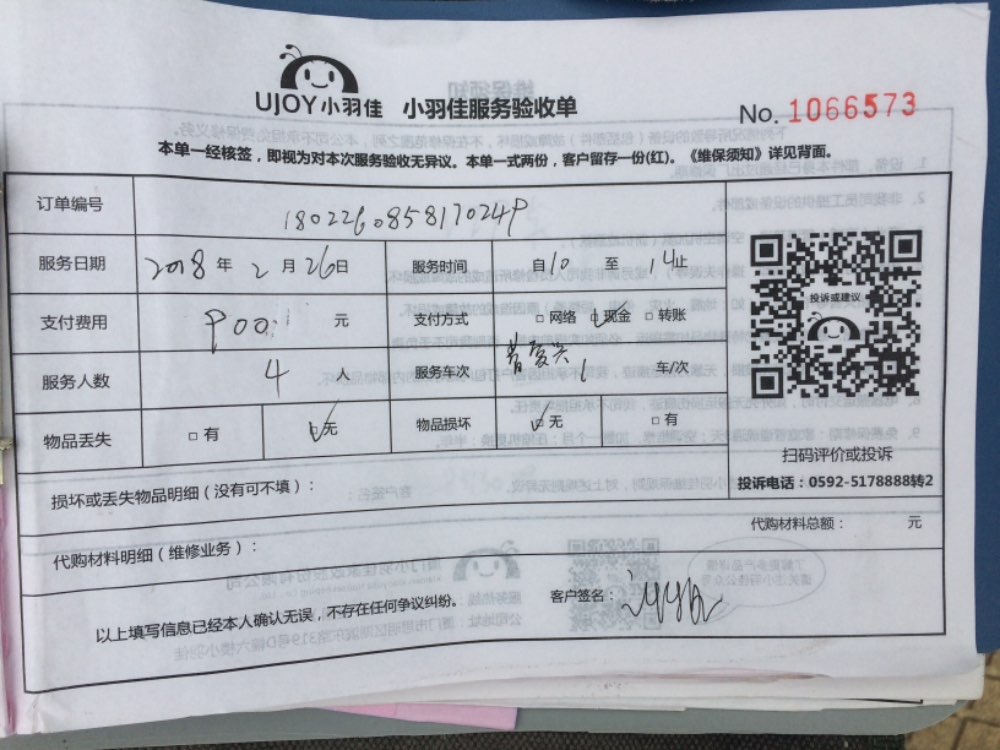 UJOY小羽佳 小羽佳服务验收单
No. 1066573
本单一经核签，即视为对本次服务验收无异议。本单一式两份，客户留存一份(红)。《维保须知》详见背面。
订单编号 180226085817024P
服务日期 2018年2月26日 服务时间 自10至14止
支付费用 900 元 支付方式 □网络 □现金 □转账
服务人数 4 人 服务车次 1 车/次
物品丢失 □有 □无 物品损坏 □无 □有
投诉或建议
扫码评价或投诉
投诉电话：0592-5178888转2
损坏或丢失物品明细（没有可不填）：
代购材料总额： 元
代购材料明细（维修业务）：
以上填写信息已经本人确认无误，不存在任何争议纠纷。 客户签名：